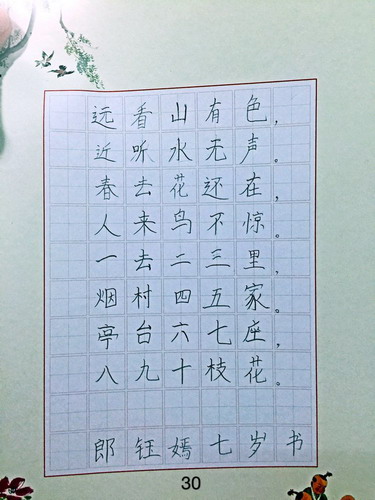 远看山有色，
近听水无声。
春去花还在，
人来鸟不惊。
一去二三里，
烟村四五家。
亭台六七座，
八九十枝花。
郎钰嫣七岁书
30